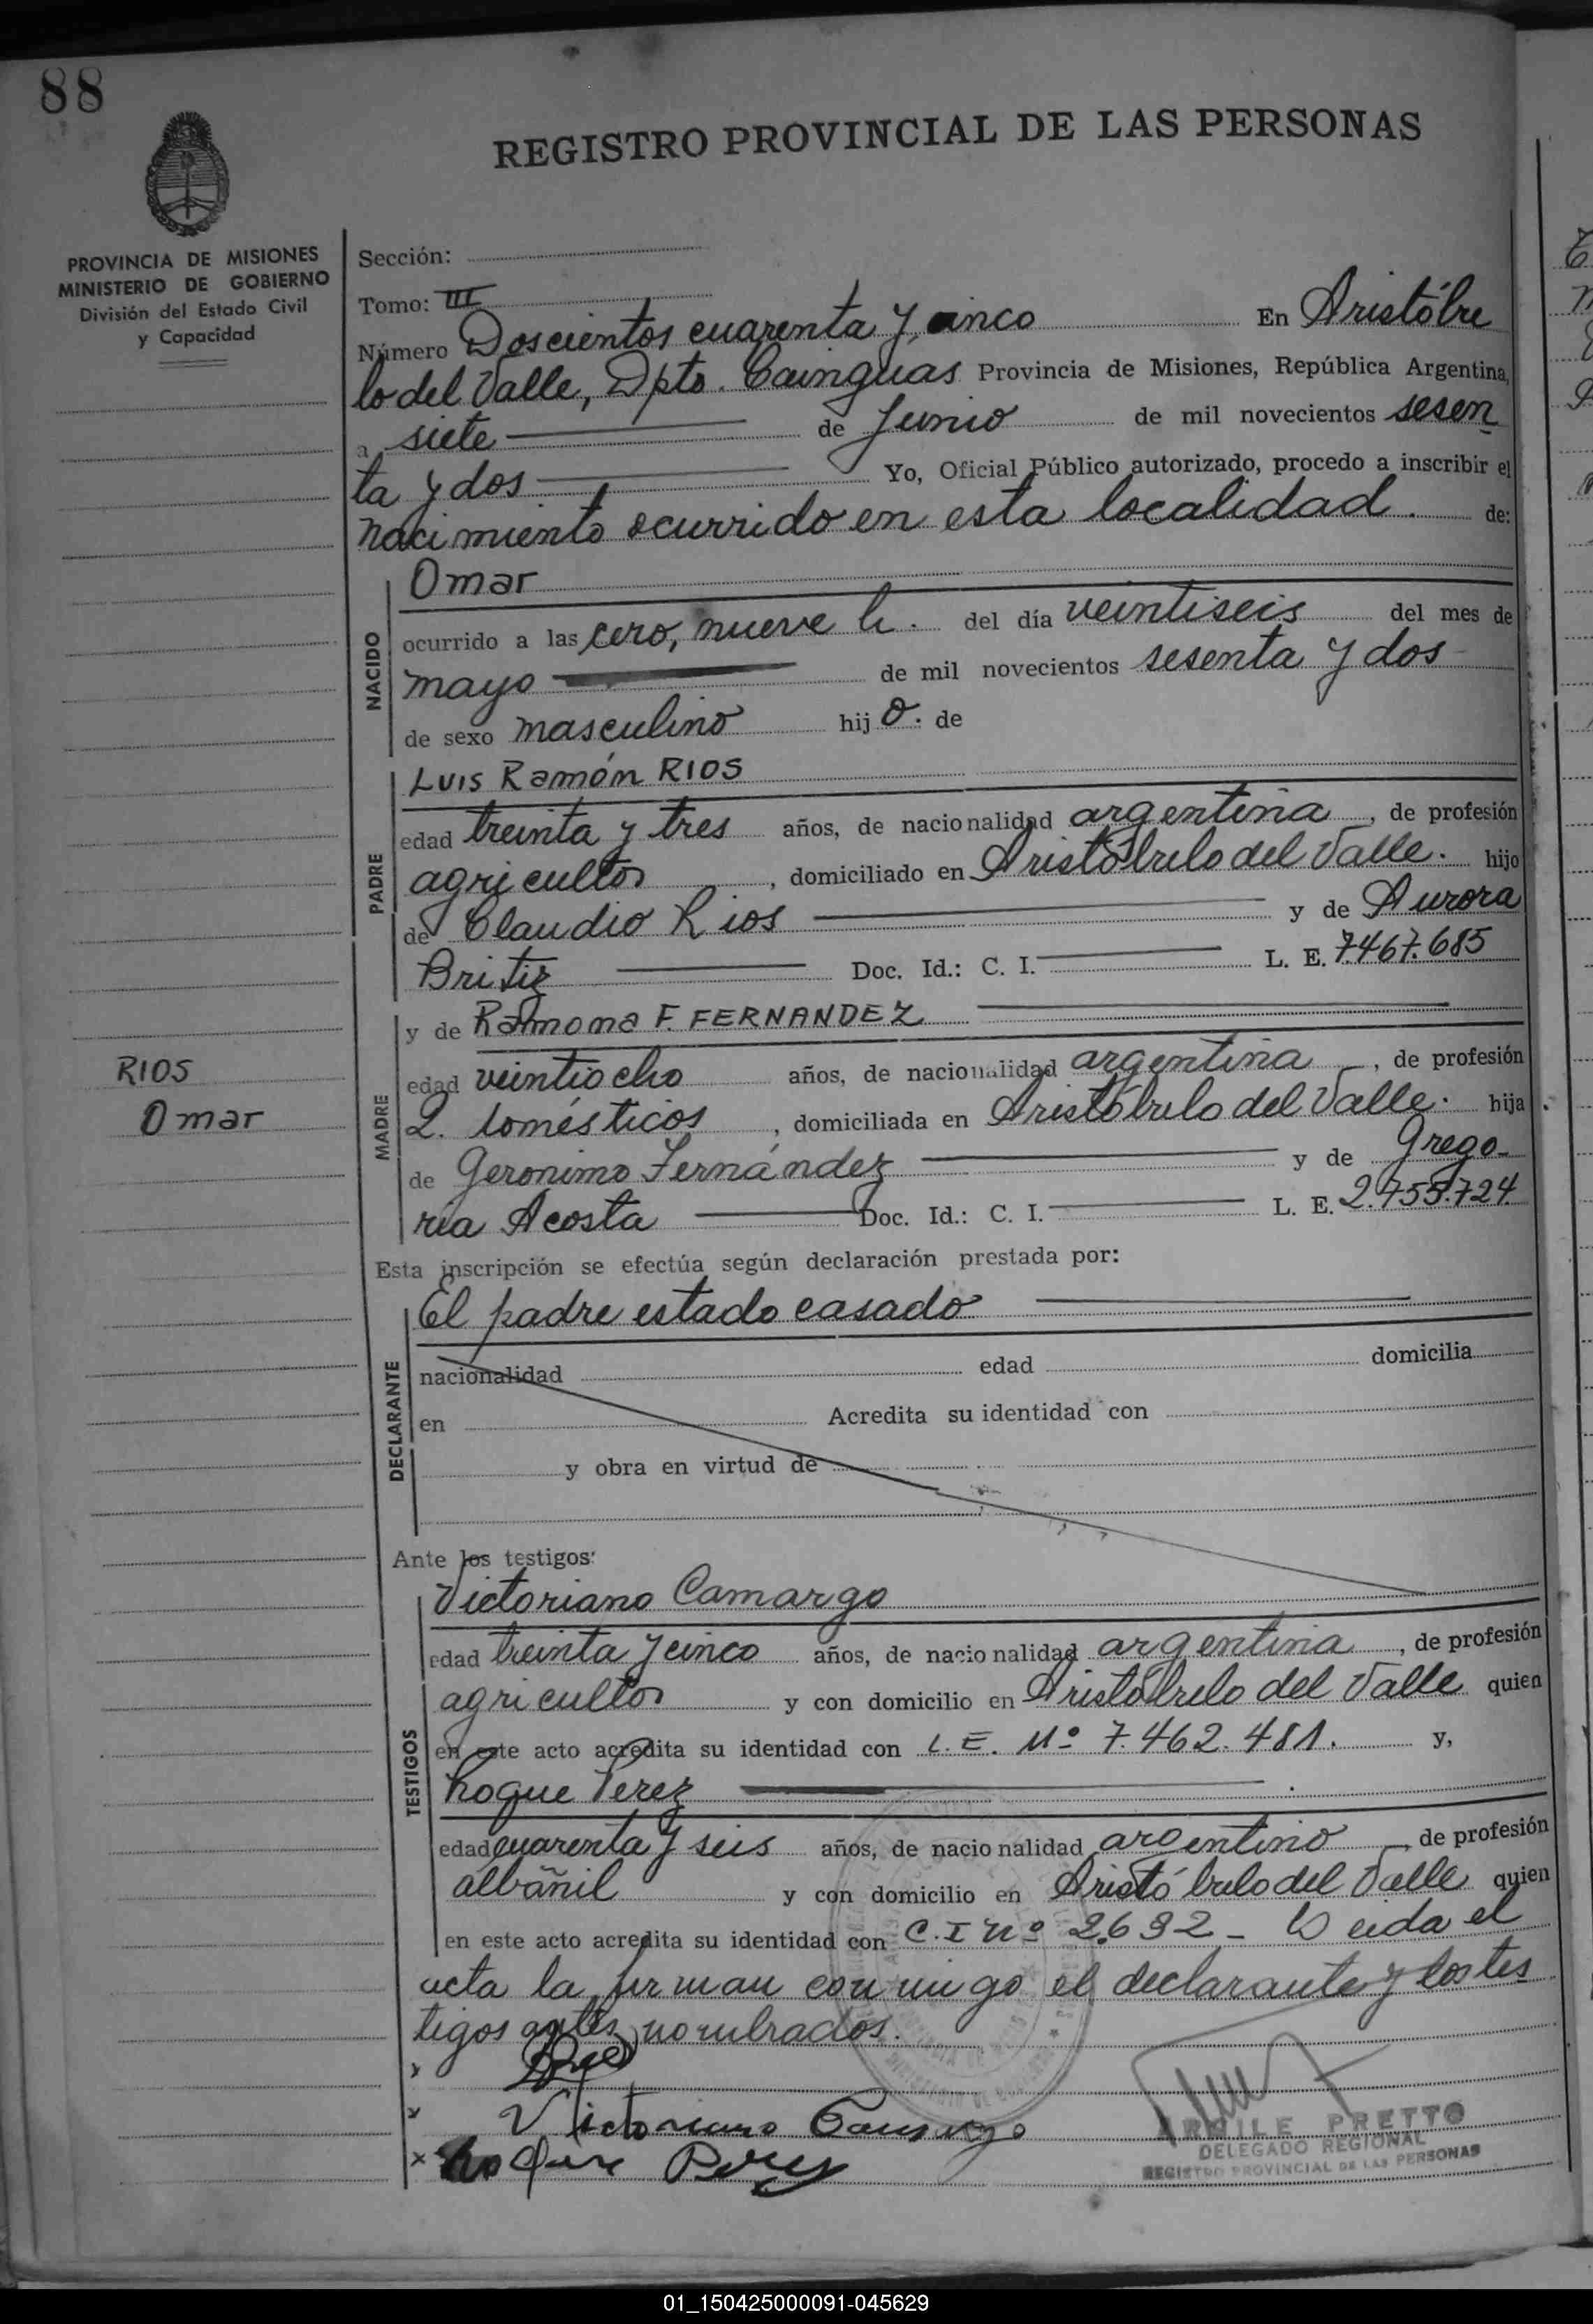 88
REGISTRO PROVINCIAL DE LAS PERSONAS
PROVINCIA DE MISIONES
MINISTERIO DE GOBIERNO
División del Estado Civil
y Capacidad
Sección:
Tomo: III
Número Doscientos cuarenta y cinco En Aristóbu
lo del Valle, Dpto. Cainguas Provincia de Misiones, República Argentina,
a siete de Junio de mil novecientos sesen
ta y dos Yo, Oficial Público autorizado, procedo a inscribir el
nacimiento ocurrido en esta localidad. de:
NACIDO
Omar
ocurrido a las cero, nueve h. del día veintiseis del mes de
mayo de mil novecientos sesenta y dos
de sexo masculino hij o. de
PADRE
Luis Ramón RIOS
edad treinta y tres años, de nacionalidad argentina, de profesión
agricultor, domiciliado en Aristóbulo del Valle. hijo
de Claudio Rios y de Aurora
Britiz Doc. Id.: C. I. L. E. 7.467.685
MADRE
y de Ramona F. FERNANDEZ
edad veintiocho años, de nacionalidad argentina, de profesión
Q. domésticos, domiciliada en Aristóbulo del Valle. hija
de Geronimo Fernández y de Grego-
ria Acosta Doc. Id.: C. I. L. E. 2.455.724
RIOS
Omar
Esta inscripción se efectúa según declaración prestada por:
DECLARANTE
El padre estado casado
nacionalidad edad domicilia
en Acredita su identidad con
y obra en virtud de
Ante los testigos:
TESTIGOS
Victoriano Camargo
edad treinta y cinco años, de nacionalidad argentina, de profesión
agricultor y con domicilio en Aristóbulo del Valle quien
en este acto acredita su identidad con L. E. Nº 7.462.481. y,
Roque Perez
edad cuarenta y seis años, de nacionalidad argentino de profesión
albañil y con domicilio en Aristóbulo del Valle quien
en este acto acredita su identidad con C. I Nº 2.692 - Leida el
acta la firman conmigo el declarante y los tes
tigos antes nombrados.
Victoriano Camargo
Roque Perez
ARGILE PRETTO
DELEGADO REGIONAL
REGISTRO PROVINCIAL DE LAS PERSONAS
01_150425000091-045629